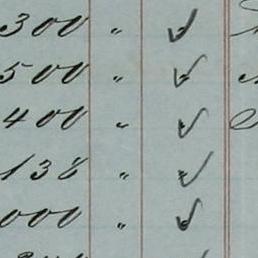 300 " ✓
500 " ✓
400 " ✓
138 " ✓
000 " ✓